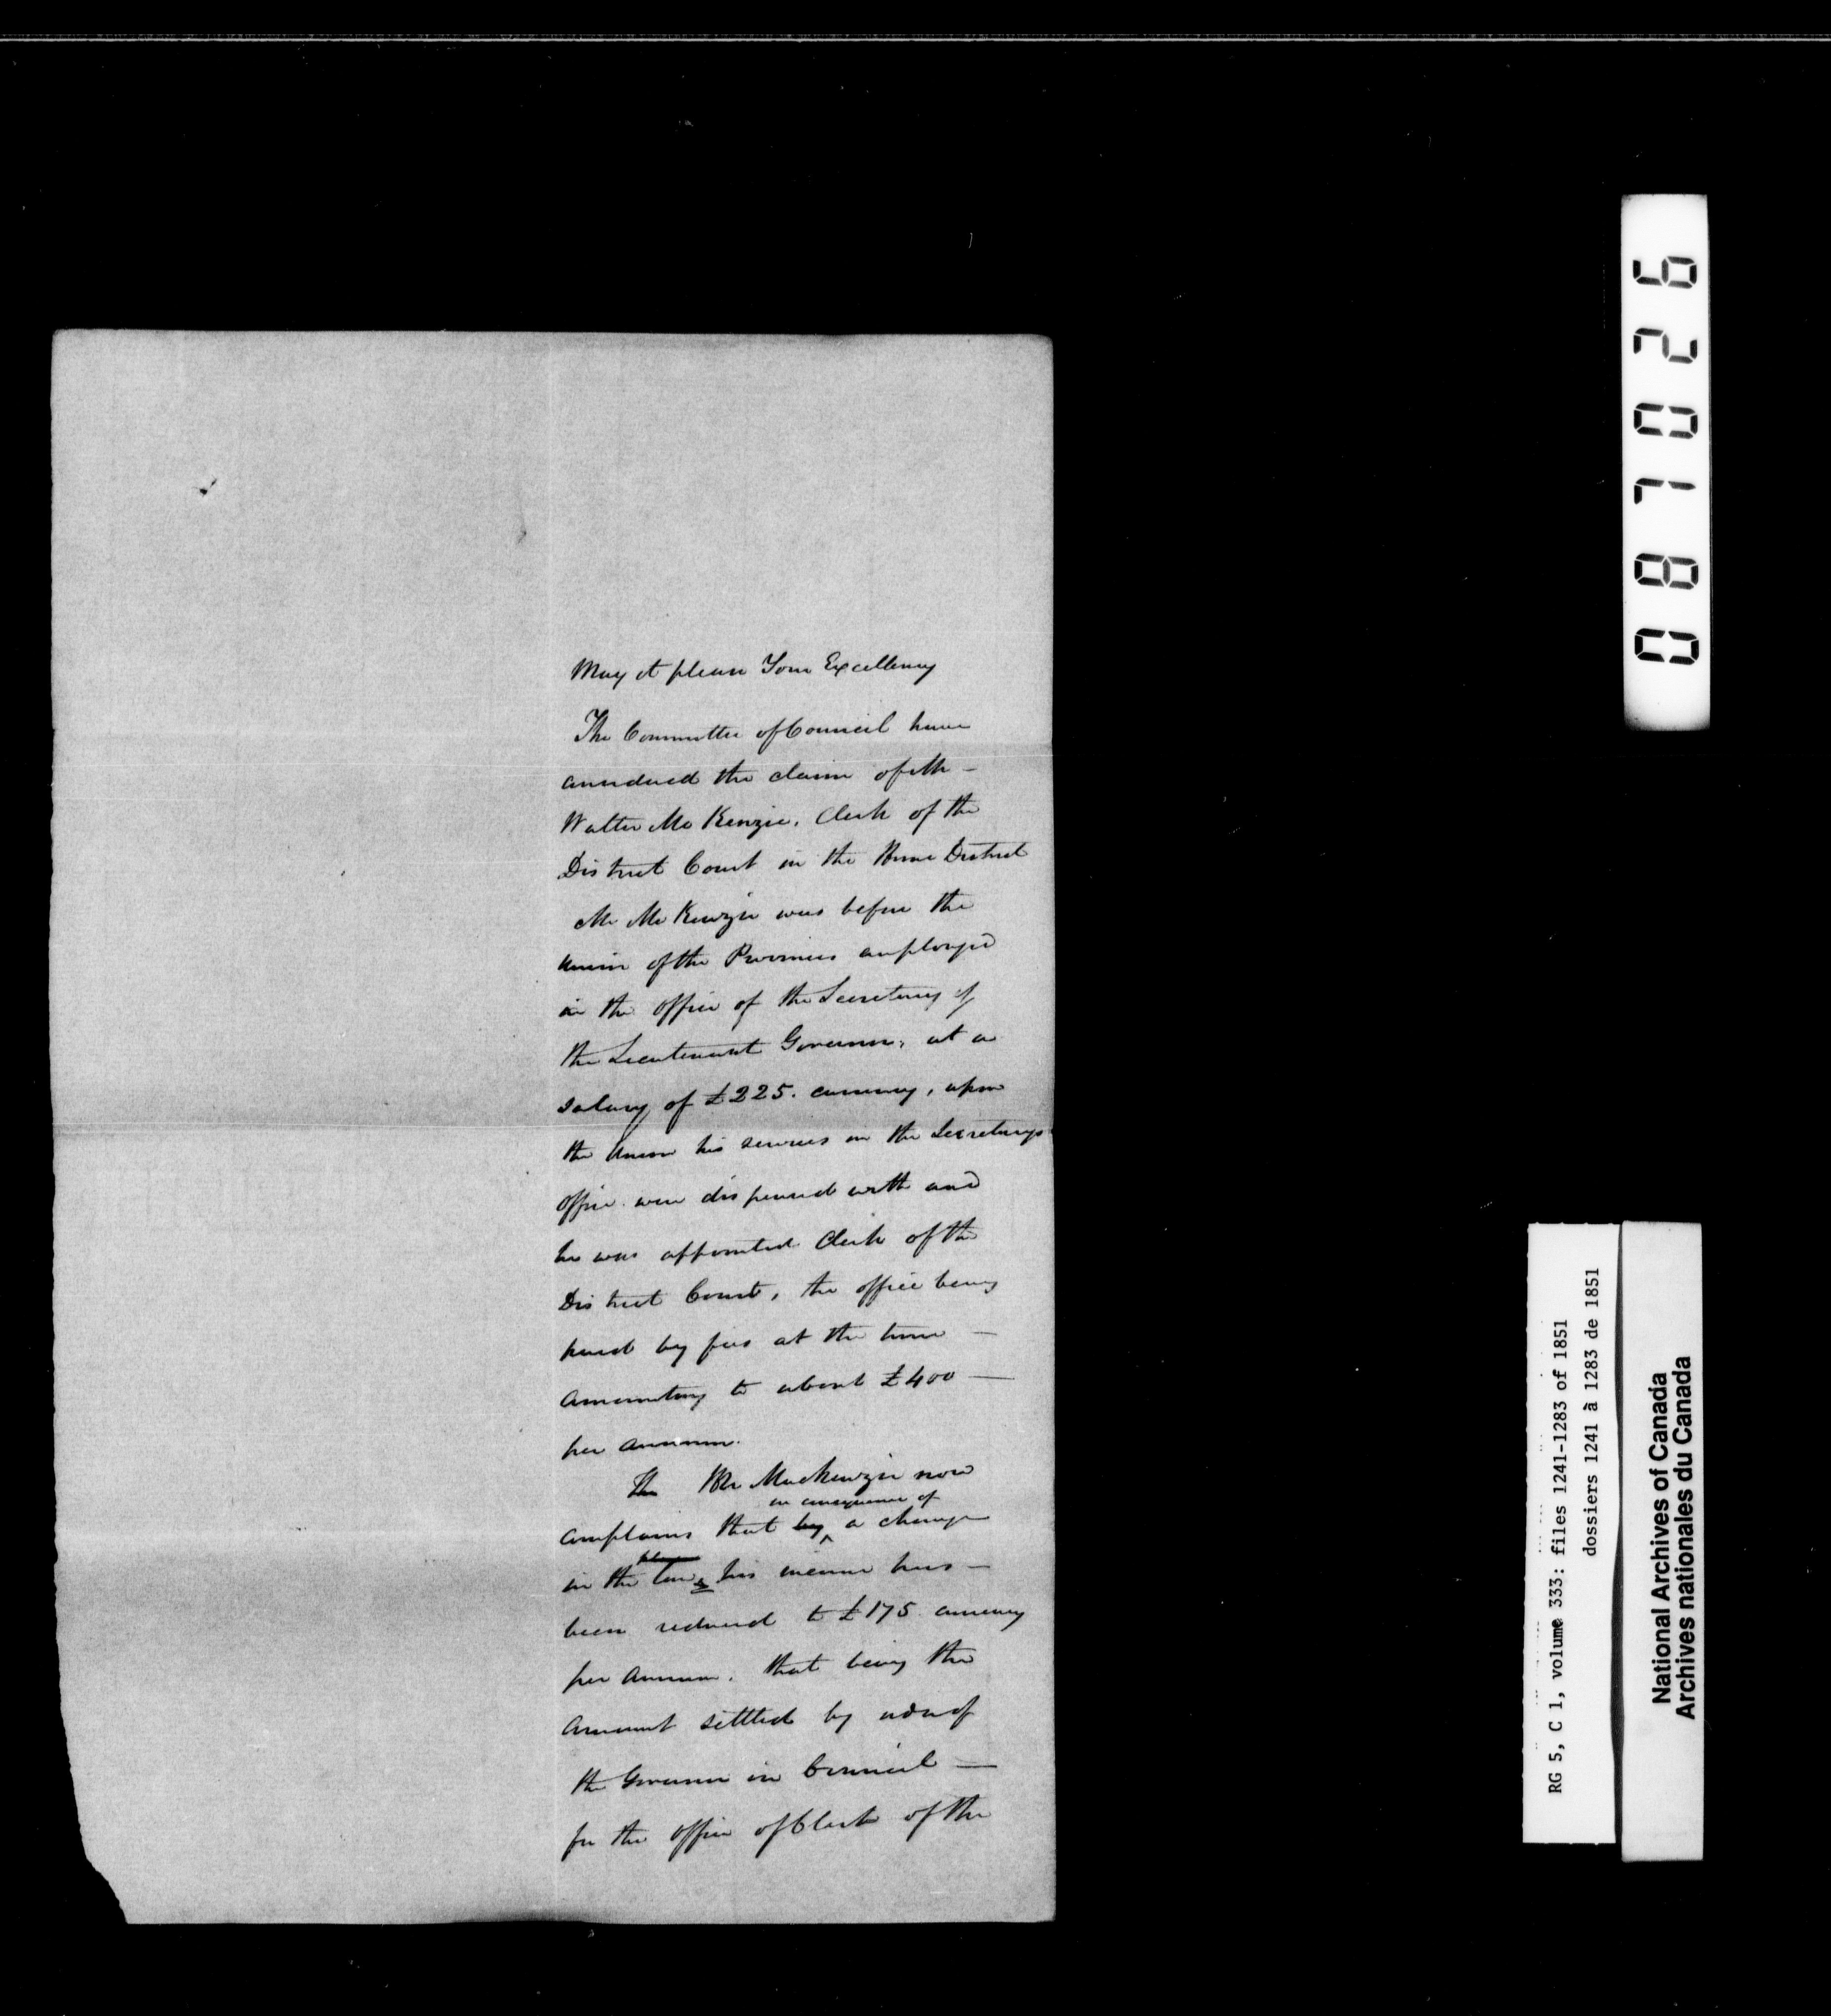 May it please Your Excellency
The Committee of Council have
considered the claim of Mr
Walter McKenzie, Clerk of the
District Court in the Home District
Mr McKenzie was before the
Union of the Provinces employed
in the office of the Secretary of
the Lieutenant Governor, at a
salary of £225. currency, upon
the Union his services in the Secretarys
office were dispensed with and
he was appointed Clerk of the
District Court, the office being
paid by fees at the time —
amounting to about £400 —
per annum.
The Mr Mackenzie now
in consequence of
complains that by a change
in the law his income has —
been reduced to £175 currency
per annum. that being the
amount settled by order of
the Governor in Council —
for the office of Clerk of the
087026
RG 5, C 1, volume 333: files 1241-1283 of 1851
dossiers 1241 à 1283 de 1851
National Archives of Canada
Archives nationales du Canada